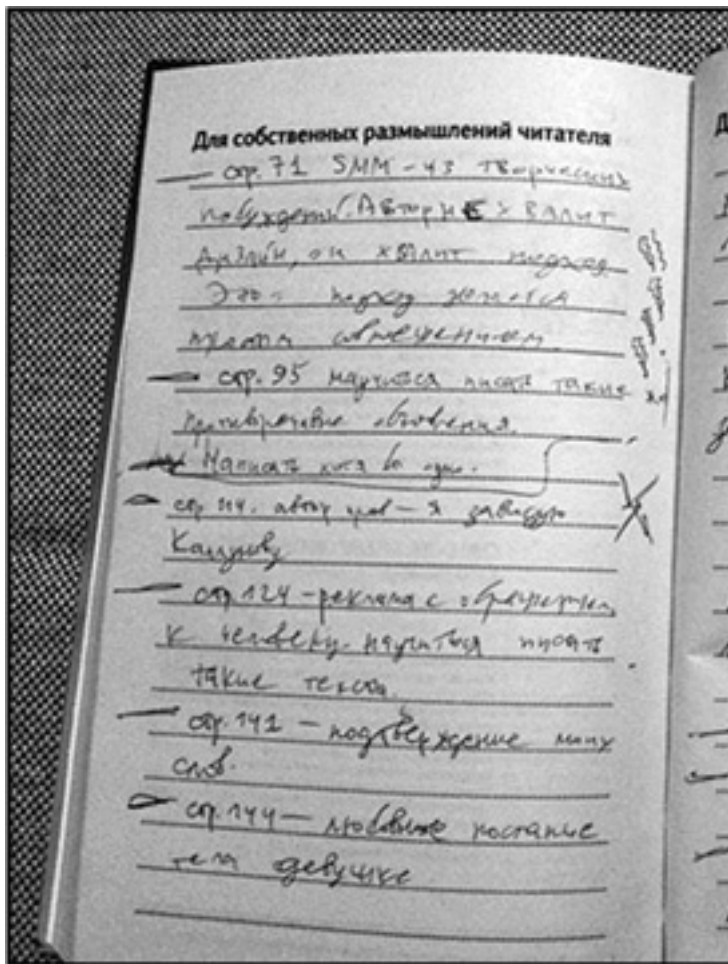 Для собственных размышлений читателя
— стр. 71 SMM - из творческих
побуждений. Автор НЕ хвалит
дизайн, он хвалит подход
Этот подход является
— стр. 95 научиться писать такие
противоречивые
Написать хотя бы одно.
стр. 114. автор прав - я завидую
— стр. 124 - реклама с обращением
к человеку. научиться писать
такие тексты.
— стр. 141 — подтверждение моих
слов.
стр. 144 — любовное послание
тела девушке